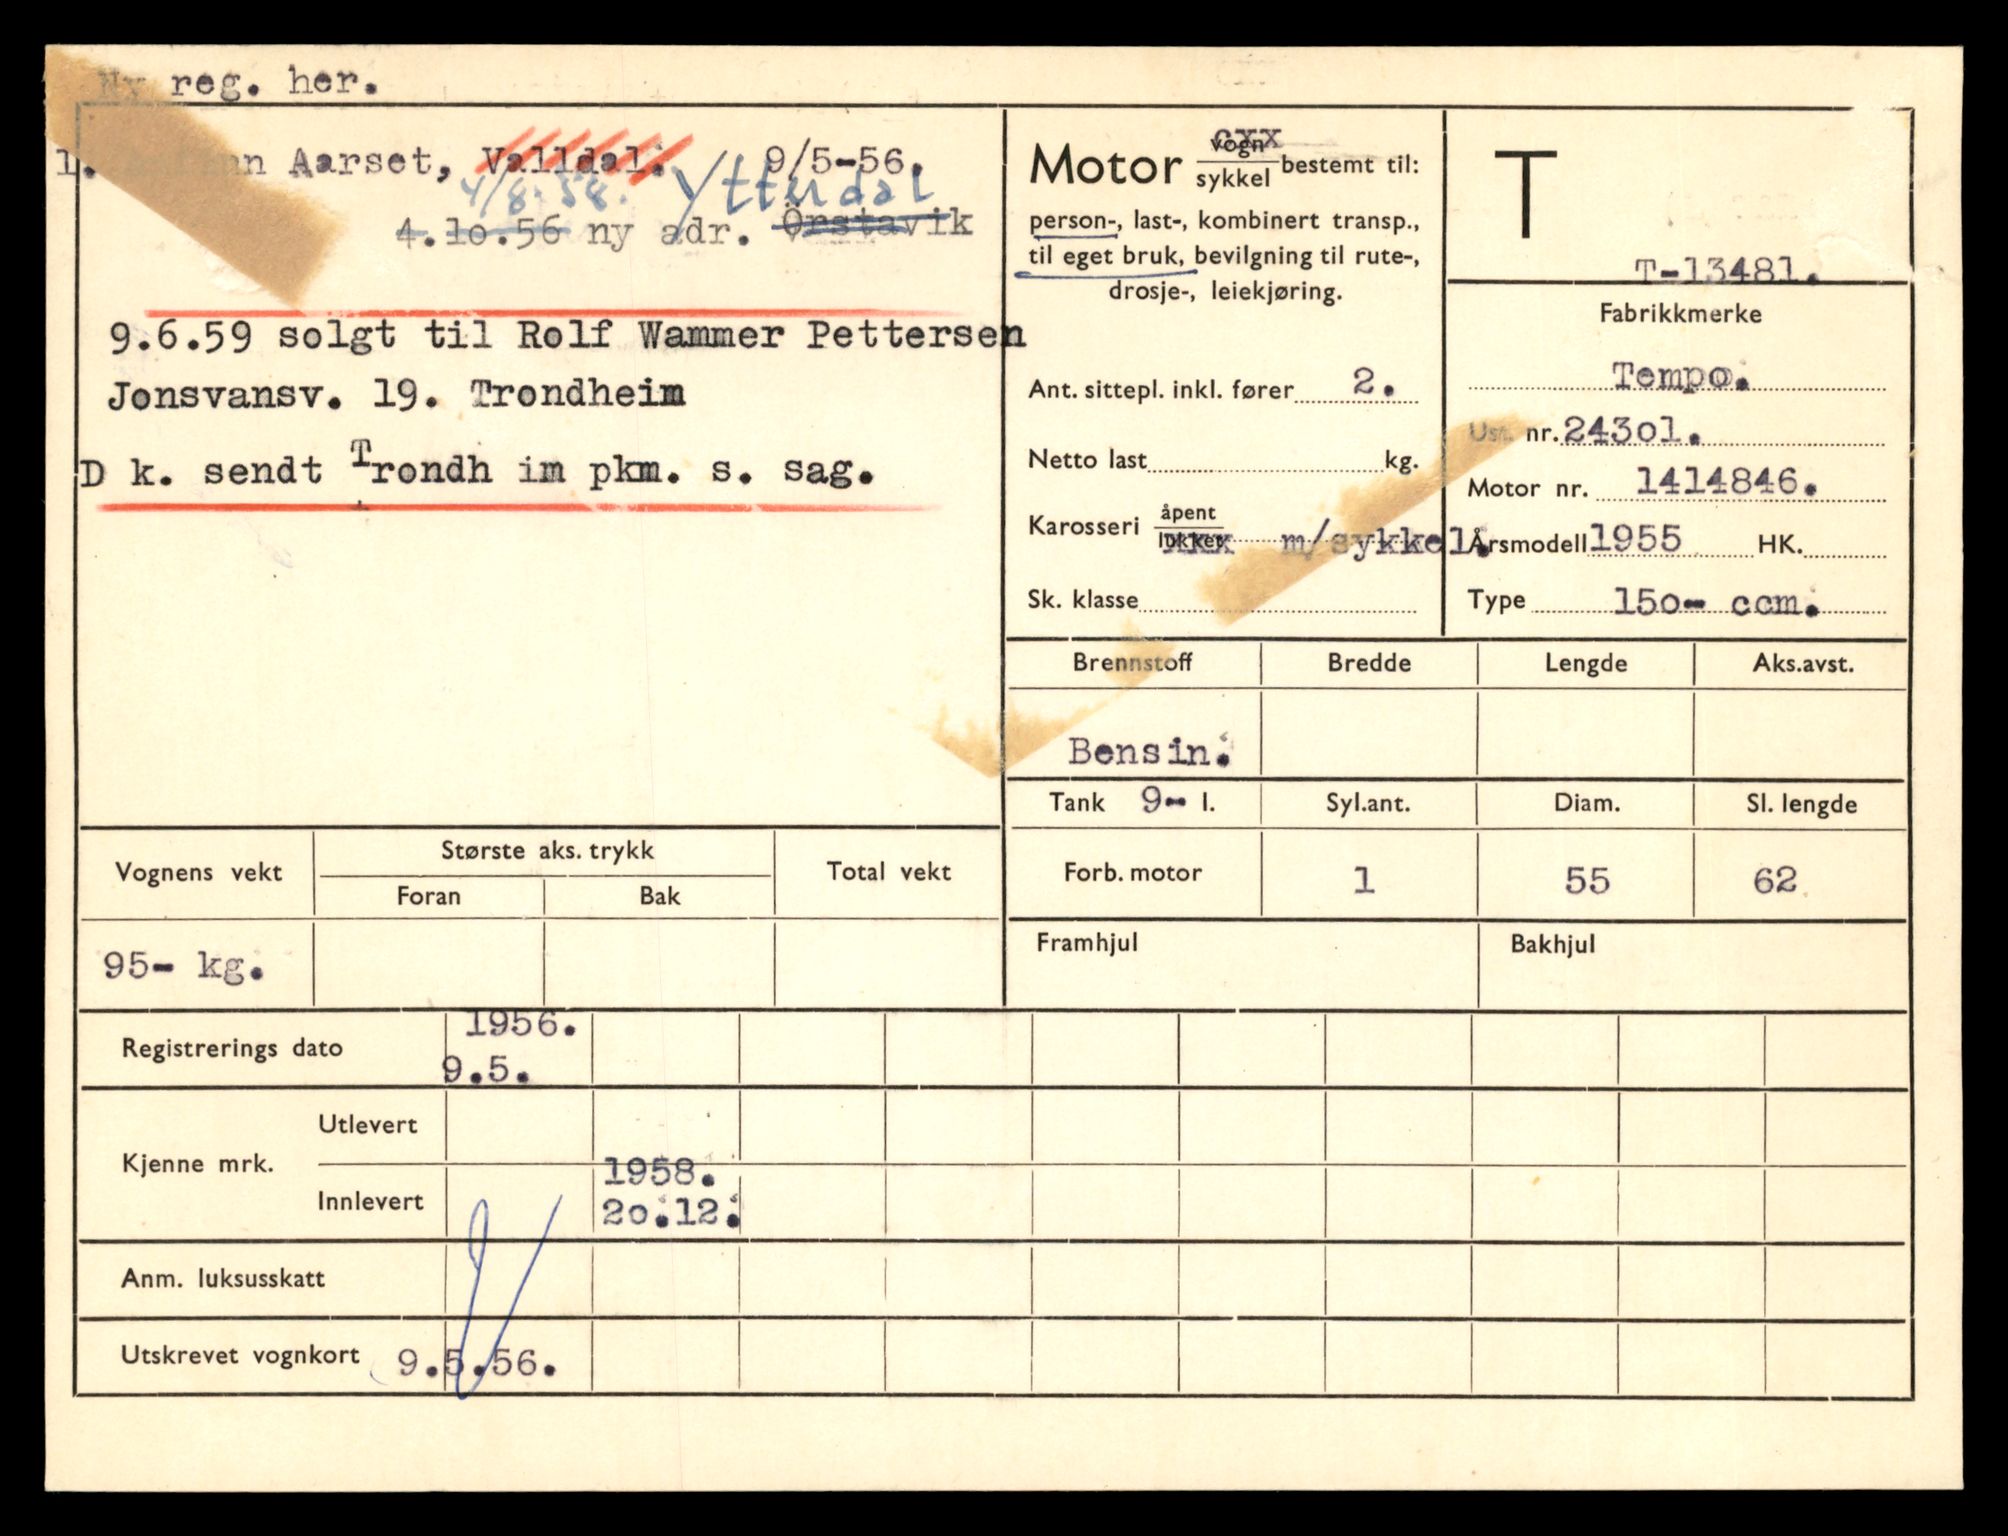 Ny reg. her.
1. Aarset, Valldal. 9/5-56.
4/8.58. Ytterdal
4.10.56 ny adr. Örstavik
9.6.59 solgt til Rolf Wammer Pettersen
Jonsvansv. 19. Trondheim
D k. sendt Trondh im pkm. s. sag.
Motor vogn cxx
sykkel bestemt til:
person-, last-, kombinert transp.,
til eget bruk, bevilgning til rute-,
drosje-, leiekjøring.
Ant. sittepl. inkl. fører 2.
Netto last kg.
Karosseri åpent
lukket xxx m/sykkel.
Sk. klasse
T
T-13481.
Fabrikkmerke
Tempo.
Ust. nr. 243o1.
Motor nr. 1414846.
Årsmodell 1955 HK.
Type 15o- ccm.
Brennstoff Bredde Lengde Aks.avst.
Bensin.
Tank 9- l. Syl.ant. Diam. Sl. lengde
Forb. motor 1 55 62
Framhjul Bakhjul
Vognens vekt Største aks. trykk Total vekt
Foran Bak
95- kg.
Registrerings dato 1956.
9.5.
Kjenne mrk. Utlevert
Innlevert 1958.
2o.12.
Anm. luksusskatt
Utskrevet vognkort 9.5.56.